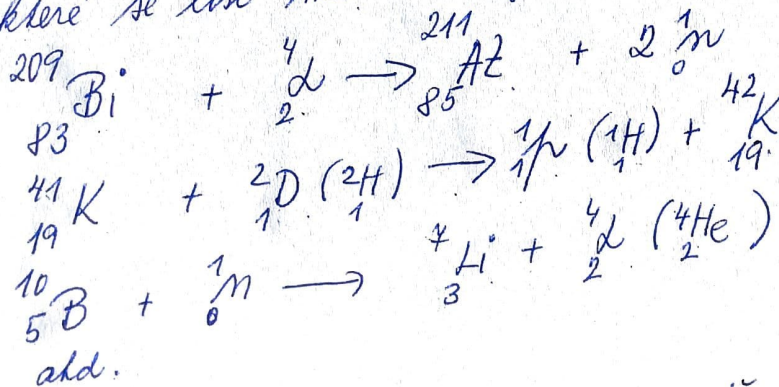 které se
²⁰⁹₈₃Bi + ⁴₂α → ²¹¹₈₅At + 2 ¹₀n
⁴¹₁₉K + ²₁D (²₁H) → ¹₁p (¹₁H) + ⁴²₁₉K
¹⁰₅B + ¹₀n → ⁷₃Li + ⁴₂α (⁴₂He)
atd.